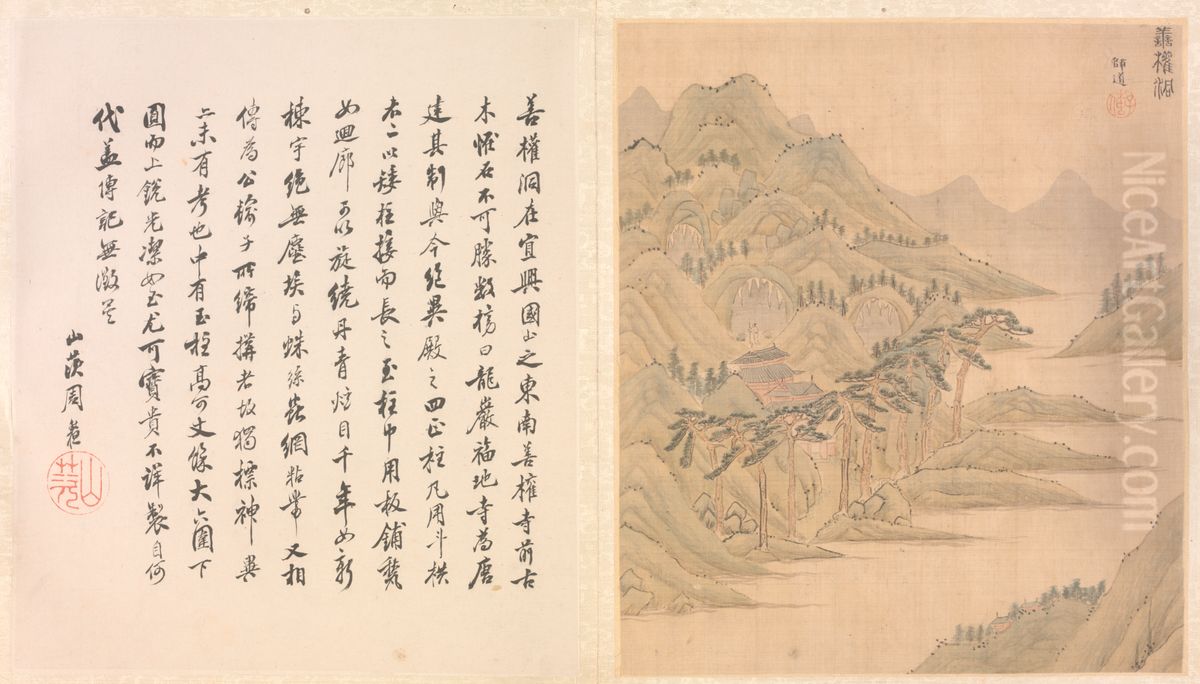 善權洞
師道
善權洞在宜興國山之東南善權寺前古
木惟石不可勝數榜曰龍巖福地寺為唐
建其制與今絕異殿之四正柱凡用斗栱
者二以矮柱接而長之至柱中用板鋪甃
如迴廊可以旋繞丹青炫目千年如新
棟宇絕無塵埃與蛛絲蟲網粘帶又相
傳為公輸子所締搆者故獨標神異
亦未有考也中有玉柱高可丈餘大六圍下
圓而上銳光潔如玉尤可寶貴不詳製自何
代蓋傳記無徵矣
山茨周
山茨
NiceArtGallery.com